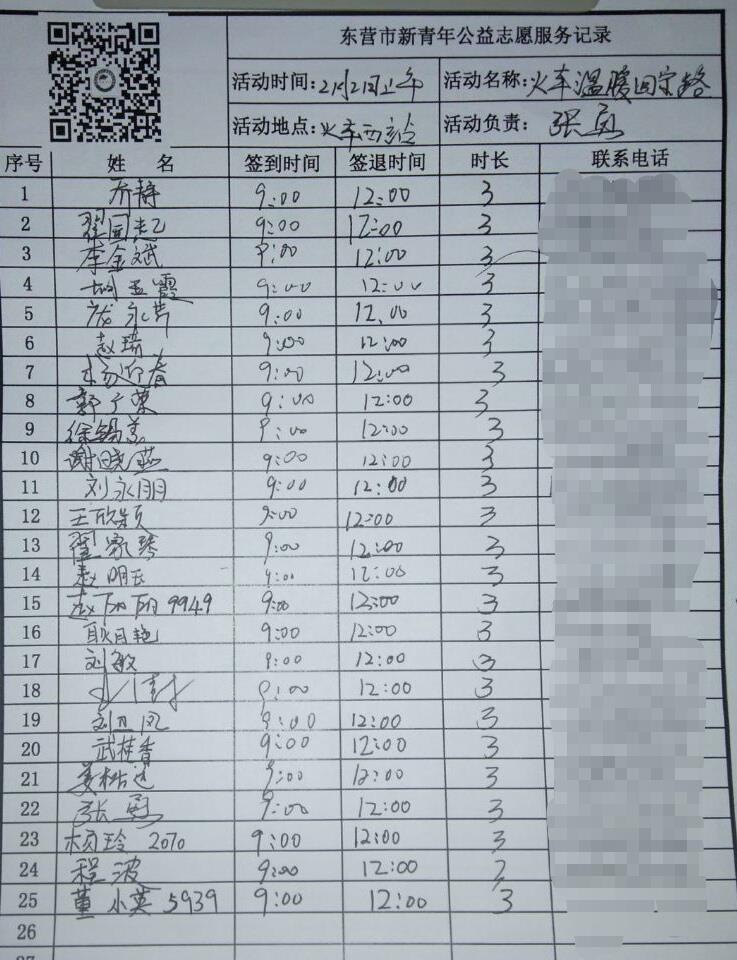 东营市新青年公益志愿服务记录
活动时间:2月2日上午 活动名称:火车温暖回家路
活动地点:火车西站 活动负责:张勇
序号 姓 名 签到时间 签退时间 时长 联系电话
1 乔静 9:00 12:00 3
2 翟国起 9:00 12:00 3
3 李金斌 9:00 12:00 3
4 胡玉霞 9:00 12:00 3
5 永 9:00 12.00 3
6 赵瑞 9:00 12:00 3
7 杨迎春 9:00 12:00 3
8 郭广荣 9:00 12:00 3
9 徐锡 9:00 12:00 3
10 谢晓燕 9:00 12:00 3
11 刘永朋 9:00 12:00 3
12 王欣颖 9:00 12:00 3
13 翟家 9:00 12:00 3
14 赵明玉 9:00 12:00 3
15 赵丽丽 9949 9:00 12:00 3
16 耿目艳 9:00 12:00 3
17 刘敏 9:00 12:00 3
18 9:00 12:00 3
19 刘卫风 9:00 12:00 3
20 武桂香 9:00 12:00 3
21 姜 9:00 12:00 3
22 张勇 9:00 12:00 3
23 杨玲 2070 9:00 12:00 3
24 程波 9:00 12:00 3
25 董小英 5939 9:00 12:00 3
26